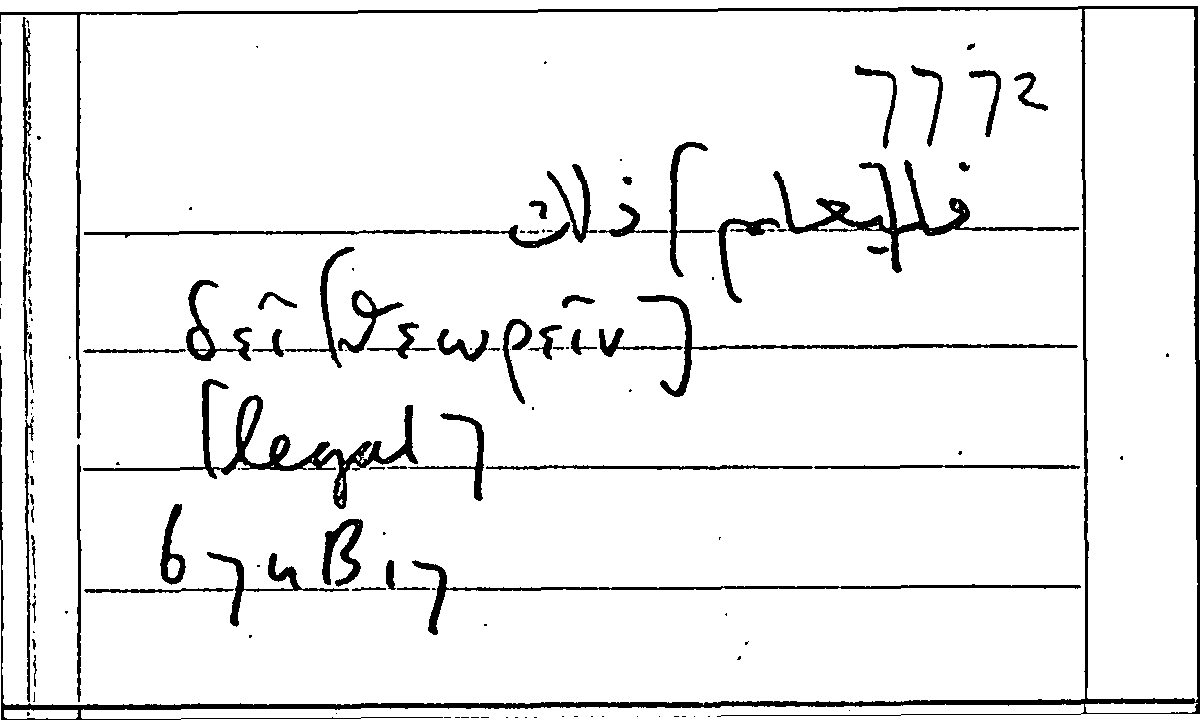 7772
فليعلم] ذلك
δεῖ [θεωρεῖν]
[legat]
674B17